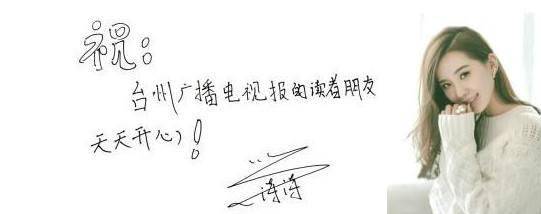 祝：
台州广播电视报的读者朋友
天天开心！
诗诗